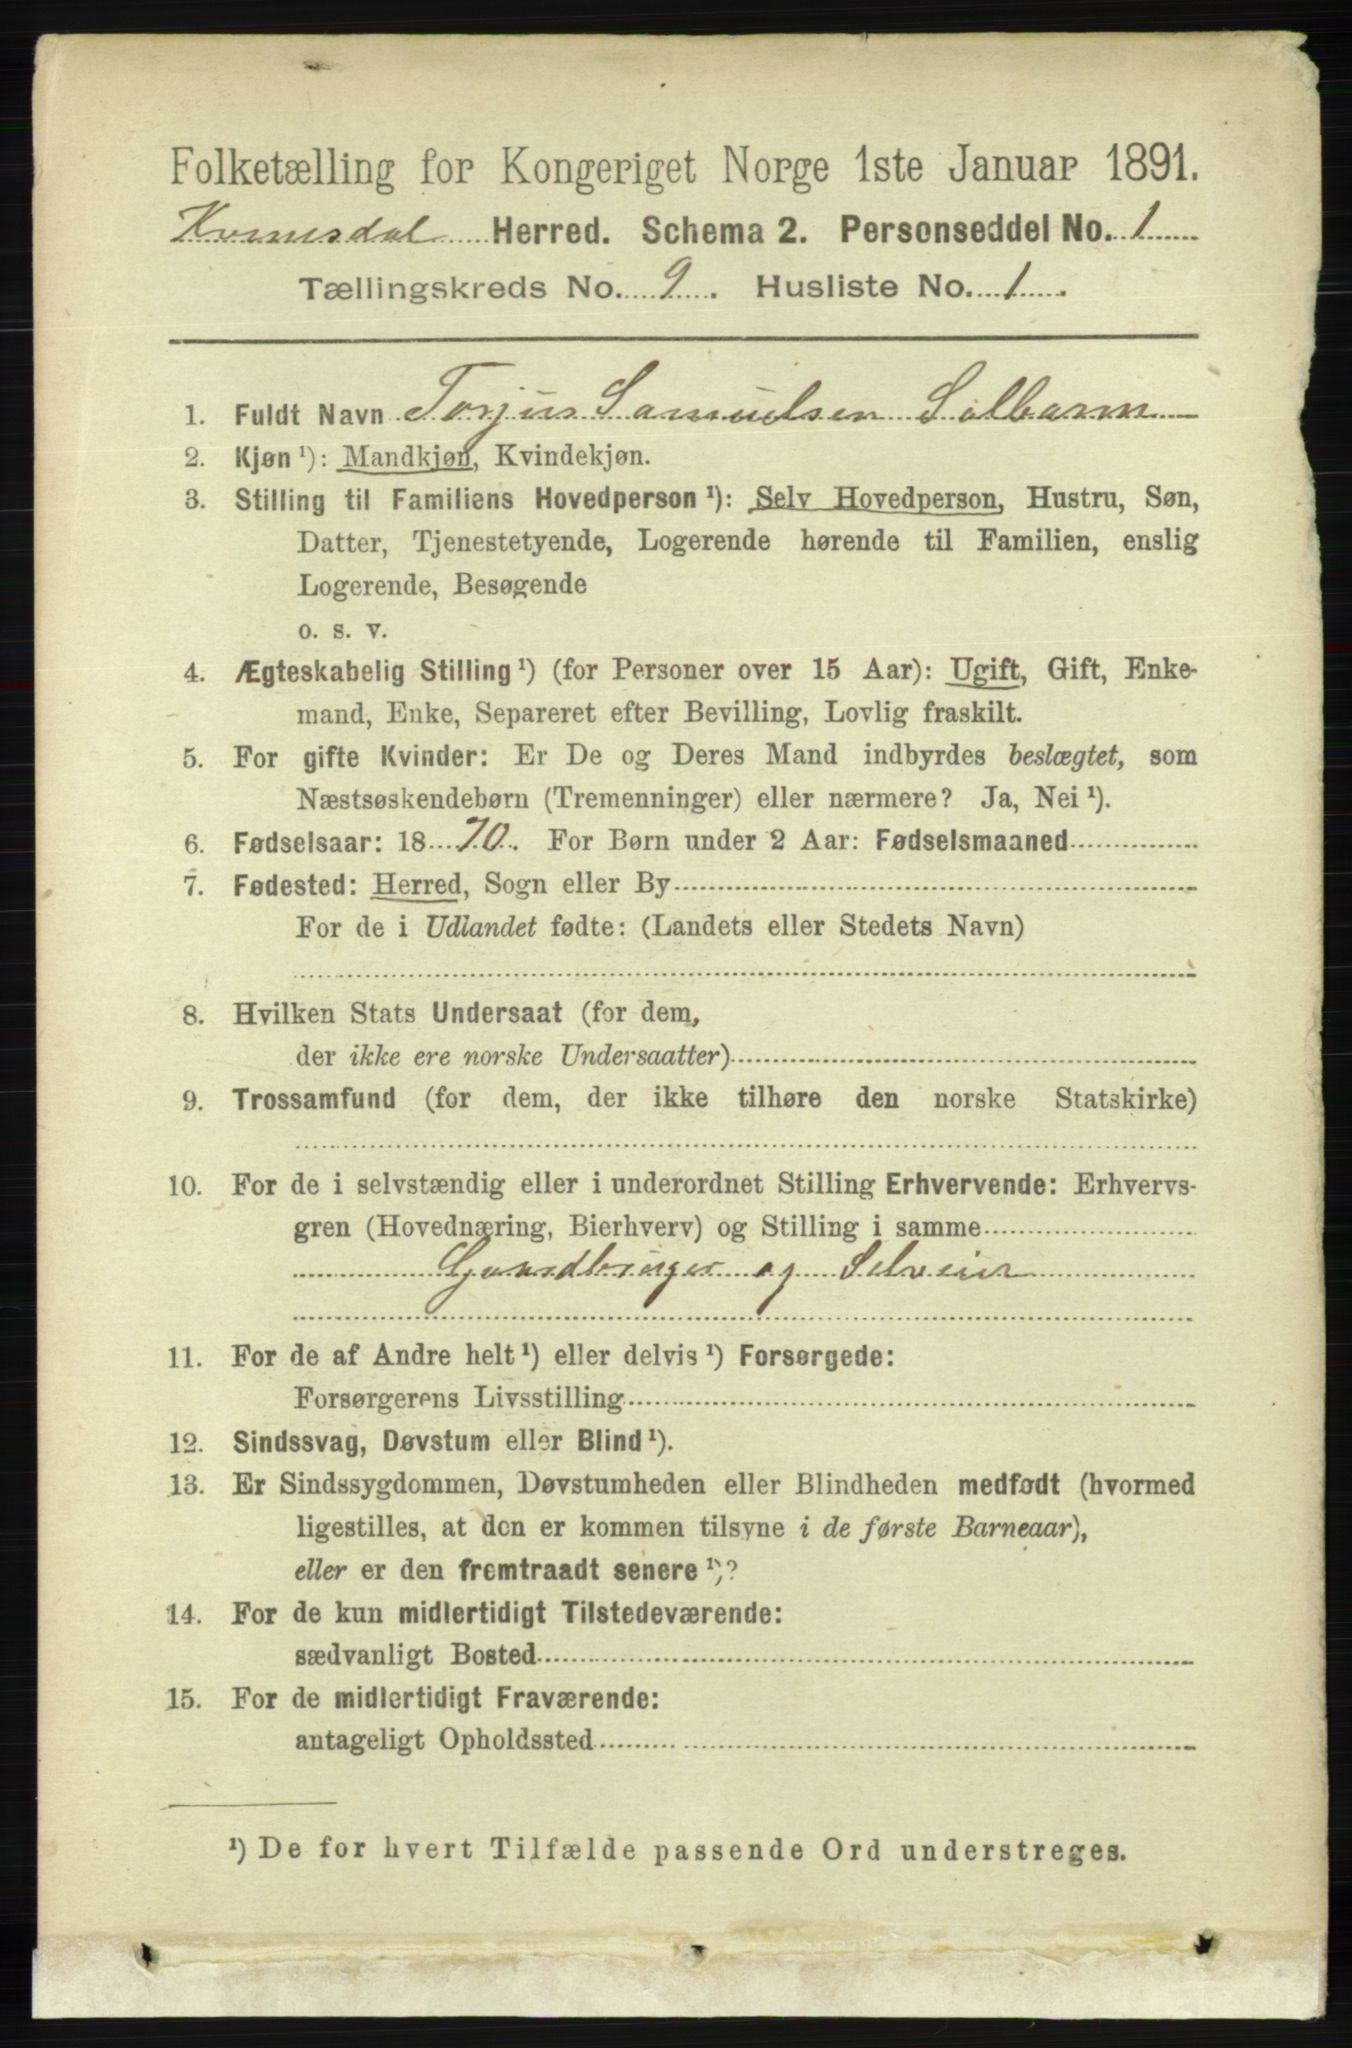 Folketælling for Kongeriget Norge 1ste Januar 1891.
Kvinesdal Herred. Schema 2. Personseddel No. 1
Tællingskreds No. 9. Husliste No. 1.
1. Fuldt Navn Torjus Samuelsen Solbarm
2. Kjøn ¹): Mandkjøn, Kvindekjøn.
3. Stilling til Familiens Hovedperson ¹): Selv Hovedperson, Hustru, Søn,
Datter, Tjenestetyende, Logerende hørende til Familien, enslig
Logerende, Besøgende
o. s. v.
4. Ægteskabelig Stilling ¹) (for Personer over 15 Aar): Ugift, Gift, Enke-
mand, Enke, Separeret efter Bevilling, Lovlig fraskilt.
5. For gifte Kvinder: Er De og Deres Mand indbyrdes beslægtet, som
Næstsøskendebørn (Tremenninger) eller nærmere? Ja, Nei ¹).
6. Fødselsaar: 1870. For Børn under 2 Aar: Fødselsmaaned
7. Fødested: Herred, Sogn eller By
For de i Udlandet fødte: (Landets eller Stedets Navn)
8. Hvilken Stats Undersaat (for dem,
der ikke ere norske Undersaatter)
9. Trossamfund (for dem, der ikke tilhøre den norske Statskirke)
10. For de i selvstændig eller i underordnet Stilling Erhvervende: Erhvervs-
gren (Hovednæring, Bierhverv) og Stilling i samme
Gaardbruger og Selveier
11. For de af Andre helt ¹) eller delvis ¹) Forsørgede:
Forsørgerens Livsstilling
12. Sindssvag, Døvstum eller Blind ¹).
13. Er Sindssygdommen, Døvstumheden eller Blindheden medfødt (hvormed
ligestilles, at den er kommen tilsyne i de første Barneaar),
eller er den fremtraadt senere ¹)?
14. For de kun midlertidigt Tilstedeværende:
sædvanligt Bosted
15. For de midlertidigt Fraværende:
antageligt Opholdssted
¹) De for hvert Tilfælde passende Ord understreges.